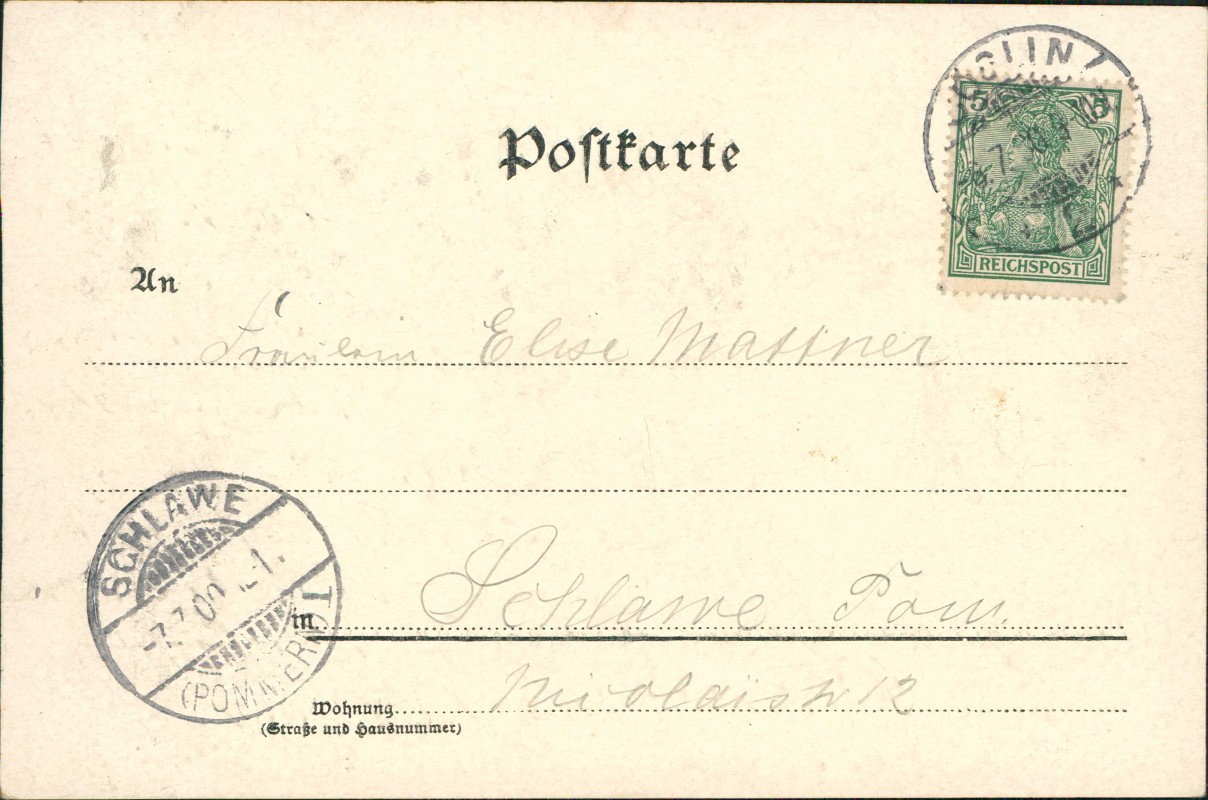 Postkarte
5 5
REICHSPOST
An
Fräulein Elise Mattner
SCHLAWE
-7.7.00
-1.
(POMMERN)
in Schlawe Pom.
Wohnung Nicolaistr 12
(Straße und Hausnummer)